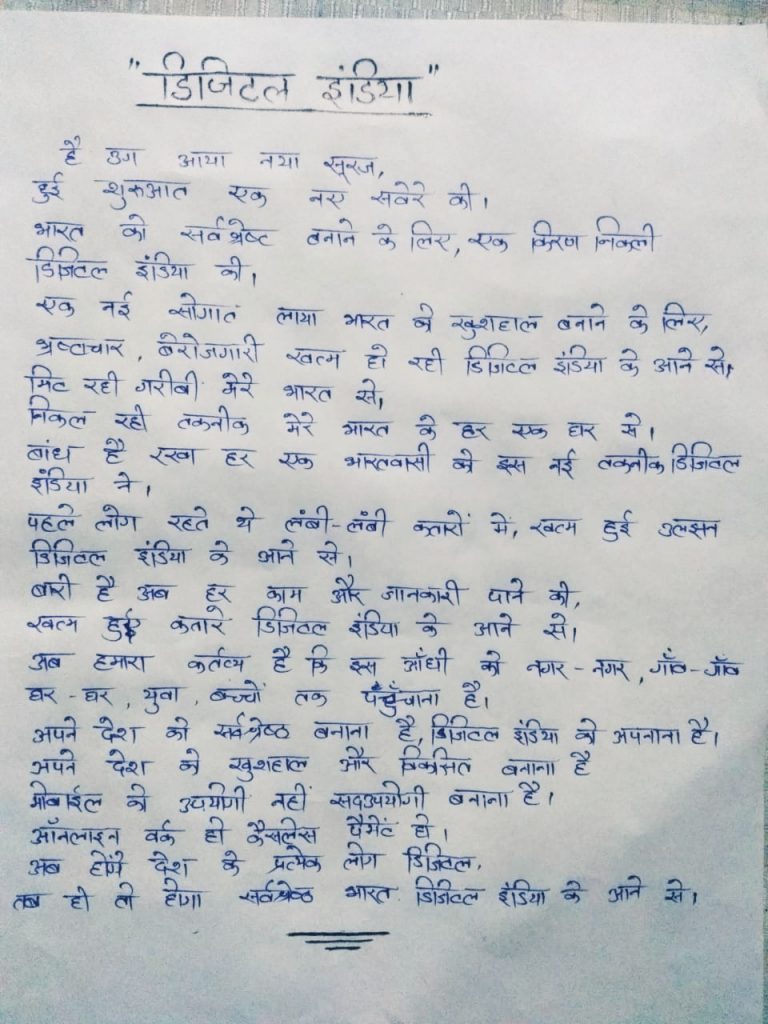 "डिजिटल इंडिया"
है उग आया नया सूरज,
हुई शुरुआत एक नए सवेरे की।
भारत को सर्वश्रेष्ट बनाने के लिए, एक किरण निकली
डिजिटल इंडिया की।
एक नई सोगात लाया भारत को खुशहाल बनाने के लिए,
भ्रष्टाचार, बेरोजगारी खत्म हो रही डिजिटल इंडिया के आने से,
मिट रही गरीबी मेरे भारत से,
निकल रही तकनीक मेरे भारत के हर एक द्वार से।
बांध है रखा हर एक भारतवासी को इस नई तकनीक डिजिटल
इंडिया ने।
पहले लोग रहते थे लंबी-लंबी कतारों में, खत्म हुई उलझन
डिजिटल इंडिया के आने से।
बारी है अब हर काम और जानकारी पाने की,
खत्म हुई कतारे डिजिटल इंडिया के आने से।
अब हमारा कर्तव्य है कि इस आँधी को नगर-नगर, गाँव-गाँव
घर-घर, युवा, बच्चों तक पहुँचाना है।
अपने देश को सर्वश्रेष्ठ बनाना है, डिजिटल इंडिया को अपनाना है।
अपने देश को खुशहाल और विकसित बनाना है
मोबाईल को उपयोगी नहीं सदउपयोगी बनाना है।
ऑनलाइन वर्क हो कैसलेस पैमेंट हो।
अब होंगे देश के प्रत्येक लोग डिजिटल,
तब ही तो होगा सर्वश्रेष्ठ भारत डिजिटल इंडिया के आने से।